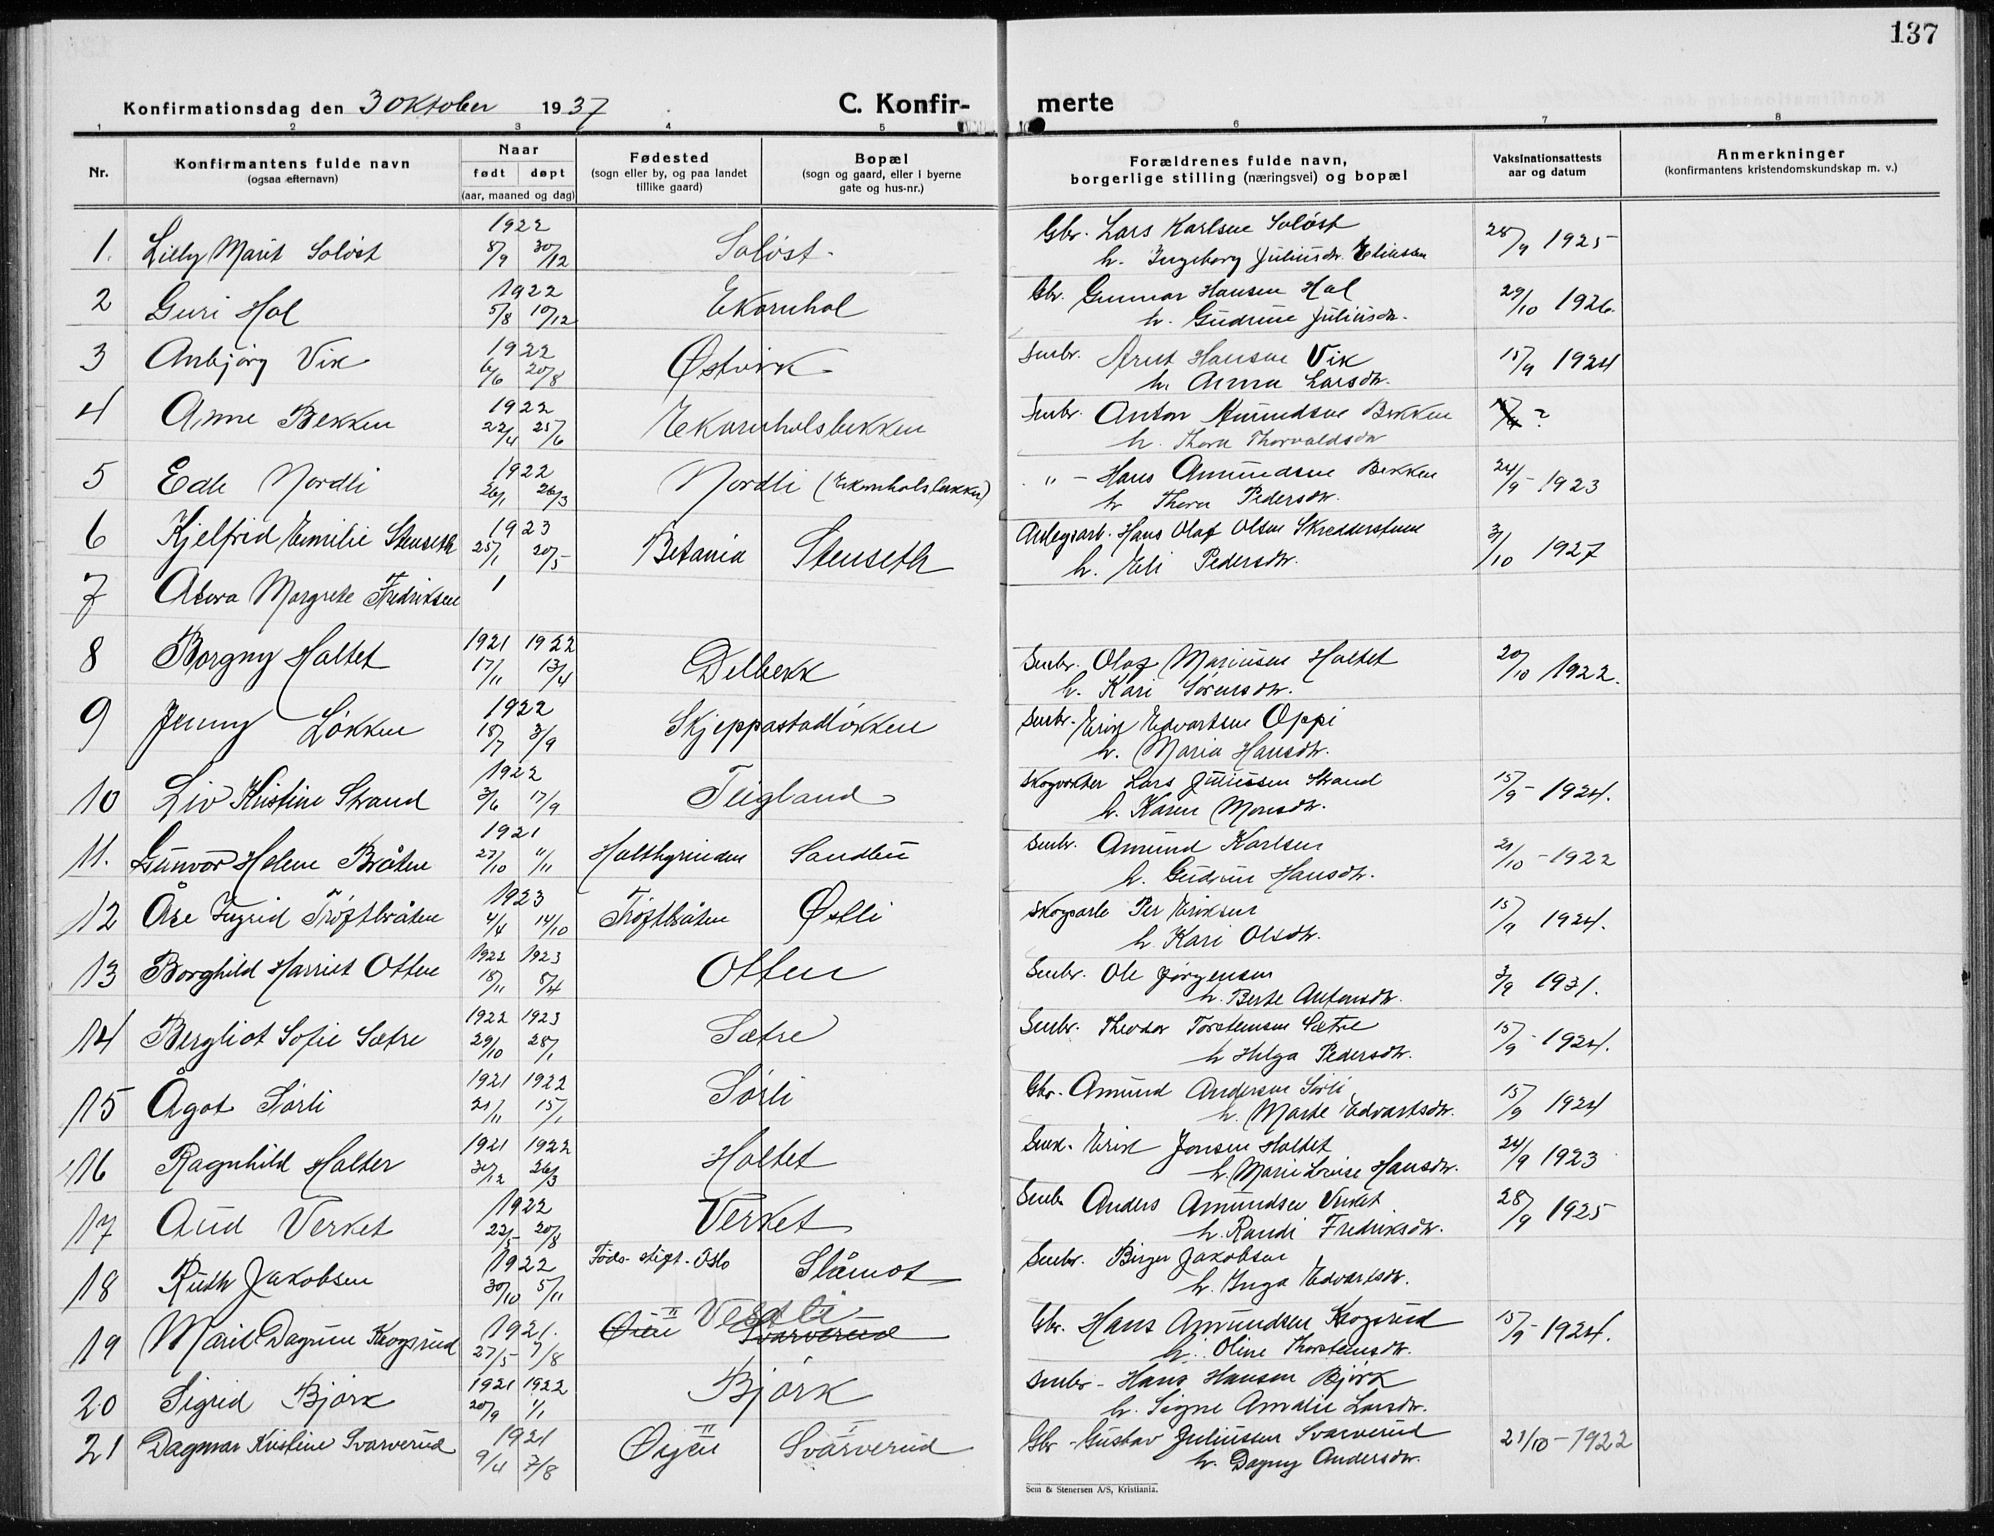 137
Konfirmationsdag den 3 Oktober 1937 C. Konfir- merte
1 2 3 4 5 6 7 8
Nr. Konfirmantens fulde navn (ogsaa efternavn) Naar født døpt (aar, maaned og dag) Fødested (sogn eller by, og paa landet tillike gaard) Bopæl (sogn og gaard, eller i byerne gate og hus-nr.) Forældrenes fulde navn, borgerlige stilling (næringsvei) og bopæl Vaksinationsattests aar og datum Anmerkninger (konfirmantens kristendomskundskap m. v.)
1922 Gbr. Lars Karlsen Soløst
1. Lilly Marit Soløst 8/9 30/12 Soløst. 28/9 1925
h. Ingeborg Juliusdr. Eliassen
1922 Gbr. Gunnar Hansen Hol
2 Guri Hol 5/8 10/12 Ekornhol 29/10 1926
h. Gudrun Juliusdr.
1922 Smbr. Arnt Hansen Vik
3 Anbjørg Vik 6/6 20/8 Østvik 15/9 1924
h. Anna Larsdr.
1922 Smbr. Anton Amundsen Bekken
4 Anne Bekken 22/4 25/6 Ekornholsbekken ?
h. Thora Thorvaldsdr
1922 " - Hans Amundsen Bekken
5 Edle Nordli 26/1 26/3 Nordli (Ekornholsbekken) 24/9 - 1923
h Thora Pedersdr.
1923 Anlegsarb. Hans Olaf Olsen Skredderstuen
6 Kjelfrid Emilie Stenseth 25/1 20/5 Betania Stenseth 3/10 1927
h. Eli Pedersdr.
7 Alora Margrete Fredriksen 1
1921 1922 Smbr. Olaf Mariusen Holtet
8 Borgny Holtet 17/11 13/4 Delbekk 20/10 1922.
h. Kari Sørensdr.
1922 Smbr. Erik Edvartsen Oppi
9 Jenny Løkken 18/7 3/9 Skjeppastadløkken
h. Maria Hansdr.
1922 Skogvokter Lars Juliussen Strand
10 Liv Kristine Strand 3/6 17/9 Teigland 15/9 - 1924.
h. Karen Monsdr.
1921 Smbr. Amund Karlsen
11. Gunvor Helene Bråten 27/10 11/11 Holthyrinden Sandbu 21/10 - 1922
h. Gudrun Hansdr.
1923 Skogsarb Per Eriksen
12 Åse Ingrid Trøftbråten 4/4 14/10 Trøftbråten Østli 15/9 1924.
h Kari Olsdr.
1922 1923 Smbr. Ole Jørgensen
13 Borghild Harriet Otten 18/11 8/4 Otten 3/9 1931.
h. Berte Antonsdr.
1922 1923 Smbr. Theodor Torstensen Sætre
14 Bergliot Sofie Sætre 29/10 28/1 Sætre 15/9 - 1924.
h Helga Pedersdr.
1921 1922 Gbr. Amund Andersen Sørli
15 Ågot Sørli 21/11 15/1 Sørli 15/9 1924
h. Marte Edvartsdr.
1921 1922 Smbr. Erik Jonsen Holtet
16 Ragnhild Holter 30/12 26/3 Holtet 24/9 1923
h. Marie Lovise Hansdr.
1922 Smbr Anders Amundsen Verket
17 Aud Verket 22/5 20/8 Verket 28/9 1925
h. Randi Fredriksdr.
1922 Føds. stift. Oslo Smbr. Birger Jakobsen
18 Ruth Jakobsen 30/10 5/11 Slåmot
h. Inga Edvartsdr.
1921. Vestli Gbr. Hans Amundsen Krogsrud
19 Marit Dagrun Krogsrud 27/5 7/8 Øien Svarverud 15/9 - 1924.
h. Oline Thorstensdr.
1921 1922 Smbr - Hans Hansen Bjørk
20 Sigrid Bjørk 20/9 1/1 Bjørk
h. Signe Amalie Larsdr.
1921 Gbr - Gustav Juliussen Svarverud
21 Dagmar Kristine Svarverud 9/4 7/8 Øyen Svarverud 21/10 - 1922
h. Dagny Andersdr.
Sem & Stenersen A/S, Kristiania.